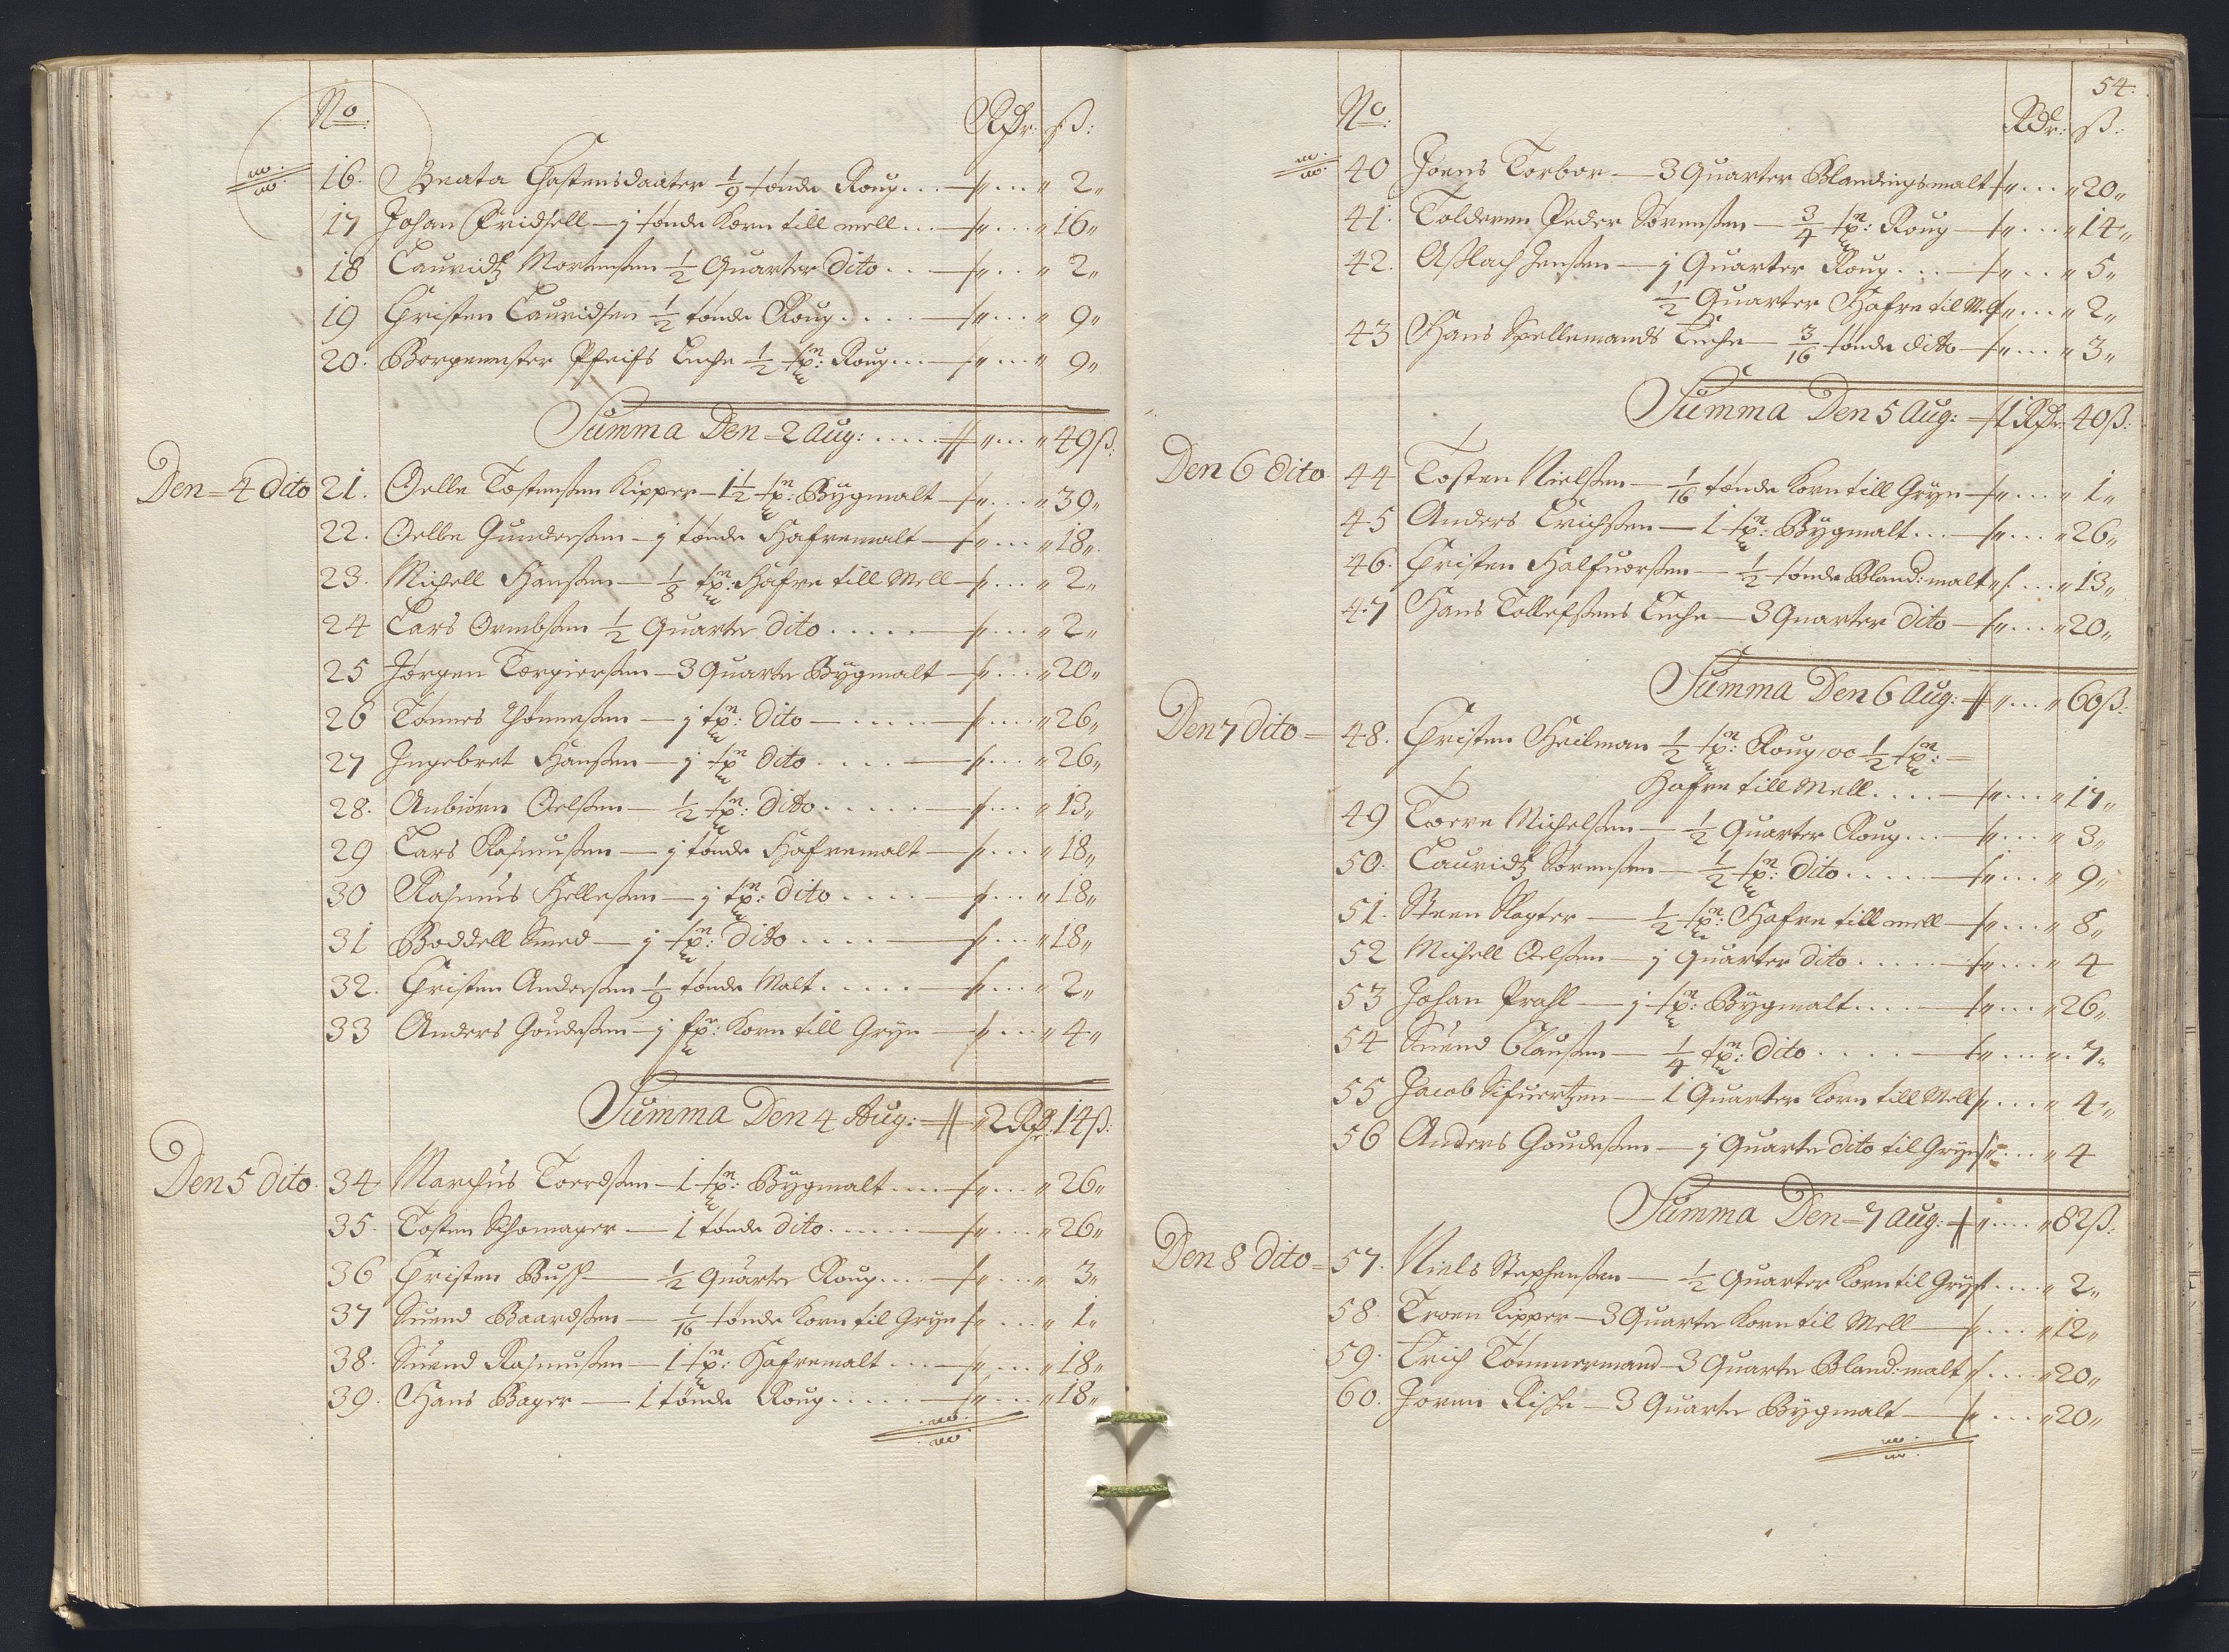 No Rdr: ß:
16. Beata Chastensdaater 1/9 tønde Roug.... 2
17 Johan Fridsell — j tønde Korn till mell... 16
18 Lauridtz Mortensen 1/2 Quarter dito... 2
19 Christen Lauridsen 1/2 tønde Roug.... 9
20. Borgemester Pfeifs Enche 1/2 tn: Roug... 9
Summa Den 2 Aug: ..... 49 ß:
Den 4 dito 21. Oelle Tostensen Kipper — 1 1/2 tn: Bÿgmalt — 39
22. Oelle Gundersen — j tønde Hafremalt — 18
23. Michell Hansen — 1/8 tn: Hafre till Mell — 2
24 Lars Ormbsen 1/2 Quarter dito..... 2
25 Jørgen Torgiersen — 3 Quarter Bÿgmalt — 20
26 Tønnes Thønnesen — j tn: dito — ..... 26
27 Ingebret Hansen — j tn dito..... 26
28. Anbiørn Oelsen — 1/2 tn: dito..... 13
29 Lars Rasmusen — j tønde Hafremalt — 18
30 Rasmus Hellesen — j tn: dito.... 18
31 Boddell Smed — j tn: dito.... 18
32. Christen Andersen 1/9 tønde Malt..... 2
33 Anders Goudesen — j tn: Korn till Gryn — 4
Summa Den 4 Aug: — 2 Rdr: 14 ß:
Den 5 dito. 34 Marchus Toerdsen — 1 tn: Bÿgmalt.... 26
35. Tosten Schomager — 1 tønde dito..... 26
36 Christen Busch — 1/2 Quarter Roug.... 3
37 Suend Baardsen — 1/16 tønde Korn til Gryn 1
38. Suend Rasmusen — 1 tn: Hafremalt... 18
39. Hans Bager — 1 tønde Roug..... 18
54.
No. Rdr: ß:
40 Joens Torbor — 3 Quarter Blandingsmalt 20
41. Tolderen Peder Sørensen — 3/4 tn: Roug — 14
42. Asslach Jensen — j Quarter Roug.... 5
1/2 Quarter Hafre til Mel 2
43 Hans Spellemands Enche — 3/16 tønde dito — 3
Summa Den 5 Aug: — 1 Rdr: 40 ß:
Den 6 dito 44 Tosten Nielsen — 1/16 tønde Korn till Gryn — 1
45 Anders Erichsen — 1 tn: Bÿgmalt... 26
46. Christen Halfuorsen — 1/2 tønde Bland: malt 13
47 Hans Tollefsens Enche — 3 Quarter dito — 20
Summa Den 6 Aug: 60 ß:
Den 7 dito = 48. Christen Heilman 1/2 tn: Roug, oc 1/2 tn: =
Hafre till Mell.... 17
49 Toere Michelsen — 1/2 Quarter Roug... 3
50. Lauridtz Sørensen — 1/2 tn: dito..... 9
51. Steen Slagter — 1/2 tn: Hafre till mell — 8
52 Michell Oelsen — j Quarter dito..... 4
53 Johan Prahl — j tn: Bÿgmalt.... 26
54 Suend Clausen — 1/4 tn: dito..... 7
55 Jacob Sifuertzen — 1 Quarter Korn till Mell 4
56 Anders Goudesen — j Quarter dito til Gryn 4
Summa Den = 7 Aug: 82 ß:
Den 8 dito = 57. Niels Stephensen — 1/2 Quarter Korn til Gryn 2
58. Troen Kipper — 3 Quarter Korn til Mell — 12
59. Erich Tømmermand — 3 Quarter Bland: malt 20
60. Joren — 3 Quarter Bÿgmalt — 20